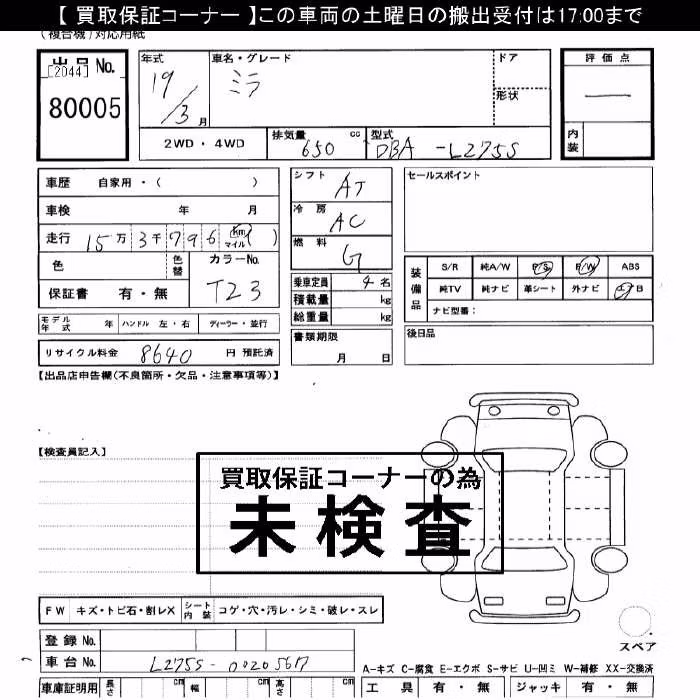 【 買取保証コーナー 】この車両の土曜日の搬出受付は17:00まで
(複合機) 対応用紙
出品 No.
[2044]
80005
年式 車名・グレード ドア
19/3 月 ミラ
形状
評価点
—
内装
2WD・4WD 排気量 650 cc 型式 DBA -L275S
車歴 自家用・( )
車検 年 月
走行 15万 3千 796 km マイル ( )
色 色替 カラーNo.
保証書 有・無 T23
モデル年式 年 ハンドル 左・右 ディーラー・並行
リサイクル料金 8640 円 預託済
シフト AT
冷房 AC
燃料 G
乗車定員 4 名
積載量 kg
総重量 kg
書類期限
月 日
セールスポイント
装備品 S/R 純A/W P/S P/W ABS
純TV 純ナビ 革シート 外ナビ エアB
ナビ型番:
後日品
【出品店申告欄(不良箇所・欠品・注意事項等)】
【検査員記入】
買取保証コーナーの為
未検査
FW キズ・トビ石・割レX シート内装 コゲ・穴・汚レ・シミ・破レ・スレ
スペア
登録 No.
車台 No. L275S-0020567
A-キズ C-腐食 E-エクボ S-サビ U-凹ミ W-補修 XX-交換済
車庫証明用 長さ cm 幅 cm 高さ cm
工具 有・無 ジャッキ 有・無